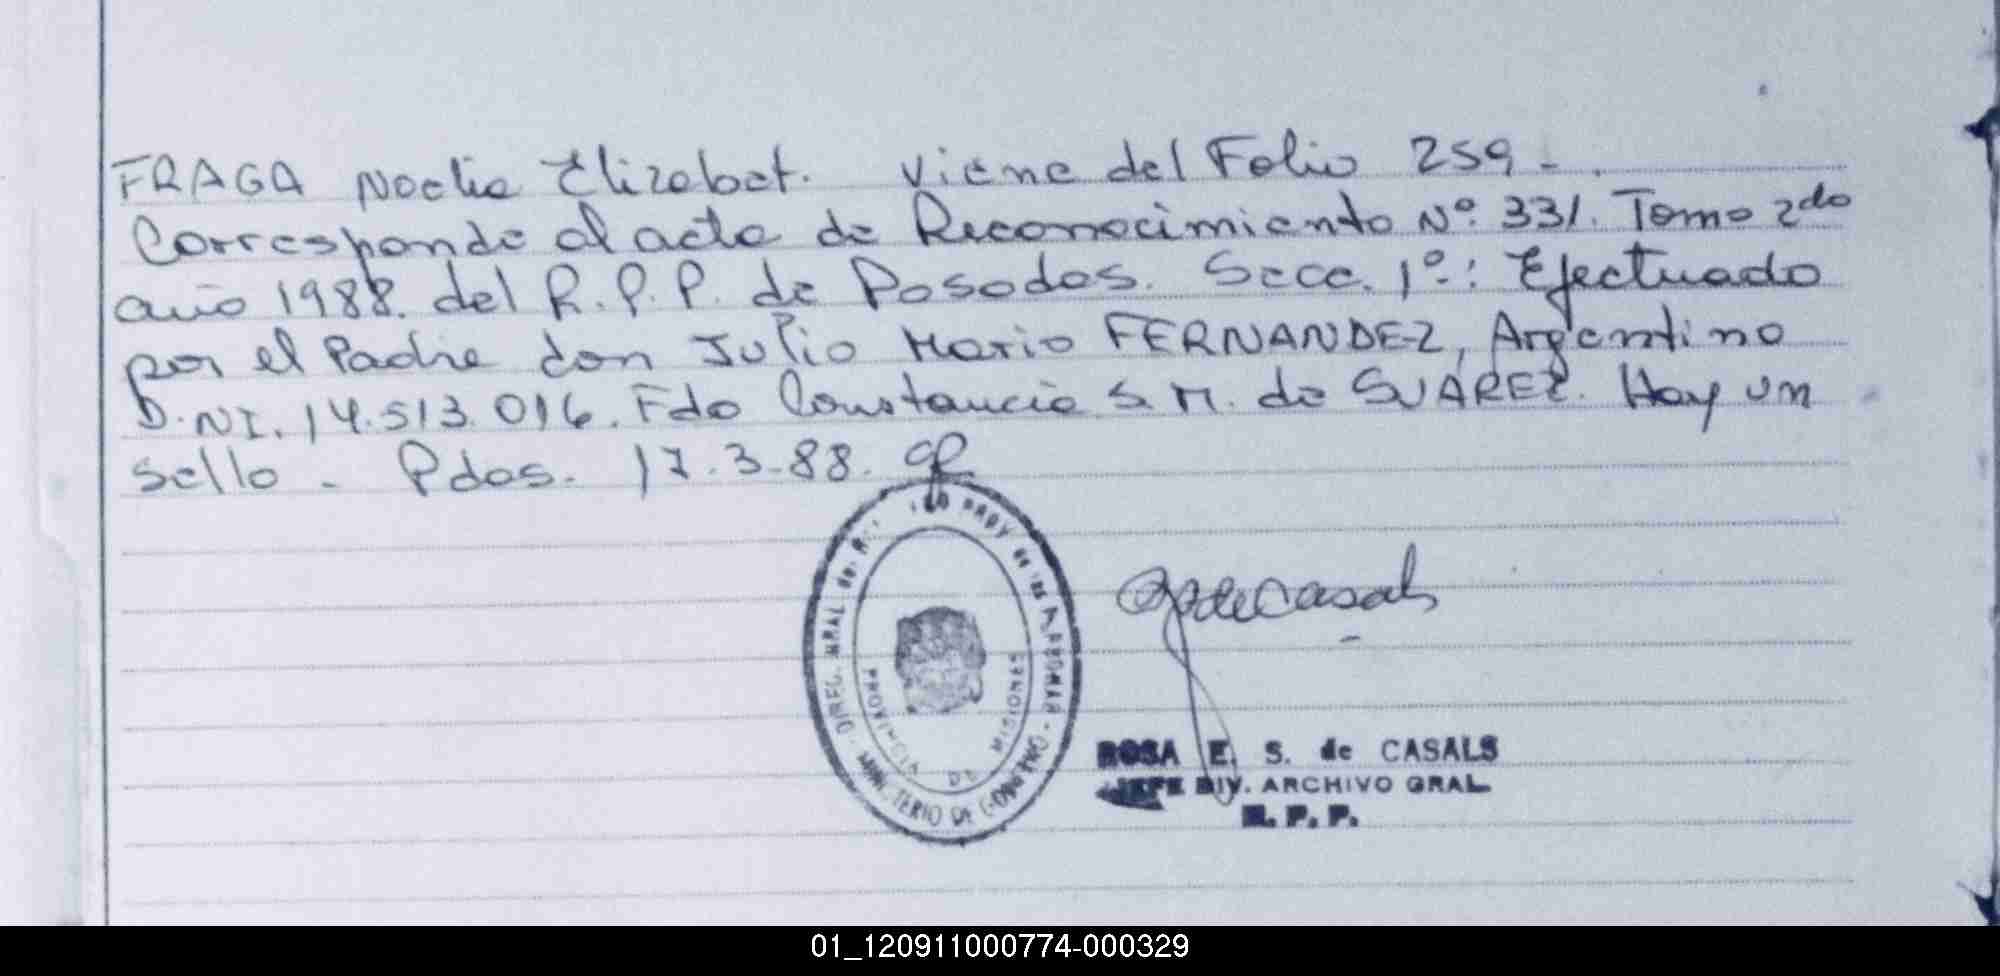 FRAGA Noelia Elizabet. Viene del Folio 259 -.
Corresponde al acta de Reconocimiento Nº 331. Tomo 2do
año 1988. del R.P.P. de Posadas. Secc. 1º: Efectuado
por el Padre don Julio Mario FERNANDEZ, Argentino
D.NI. 14.513.016. Fdo Constancia S.M. de SUÁREZ. Hay un
sello - Pdas. 17.3-88.
DIREC. GRAL del R. PROV de las PERSONAS - MINISTERIO DE GOBIERNO
PROVINCIA DE MISIONES
deCasals
ROSA E. S. de CASALS
JEFE DIV. ARCHIVO GRAL
R. P. P.
01_120911000774-000329